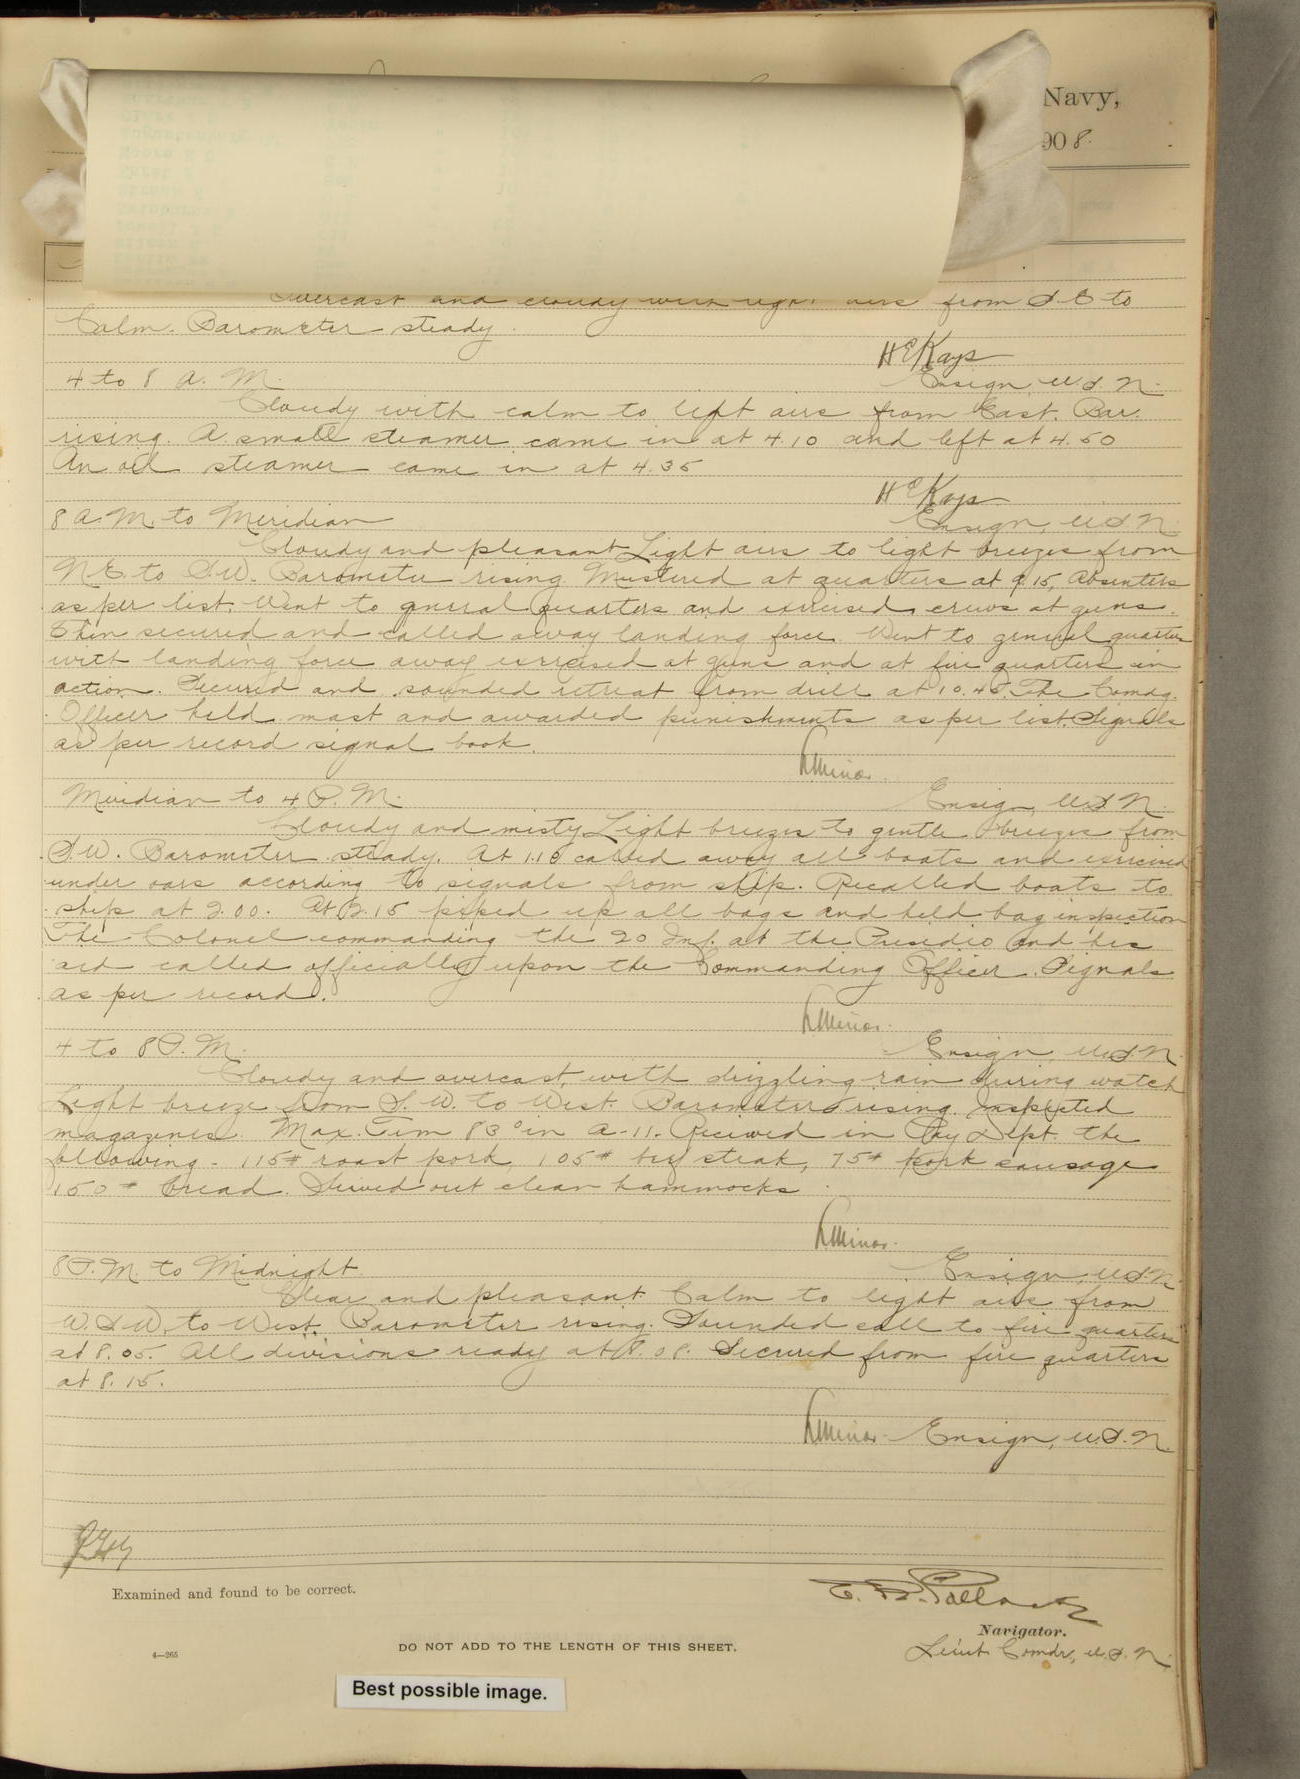 Navy,
908.
Overcast and cloudy with light airs from S E to
Calm. Barometer steady.
H E Kays
4 to 8 A. M. Ensign, U. S. N.
Cloudy with calm to left airs from East. Bar.
rising. A small steamer came in at 4.10 and left at 4.50
An oil steamer came in at 4.35
H E Kays
8 A.M. to Meridian Ensign, U S N.
Cloudy and pleasant Light airs to light breezes from
N.E. to S.W. Barometer rising. Mustered at quarters at 9.15, Absentees
as per list. Went to general quarters and exercised crews at guns.
Then secured and called away landing force. Went to general quarters
with landing force away exercised at guns and at fire quarters in
action. Secured and sounded retreat from drill at 10.45. The Comdg.
Officer held mast and awarded punishments as per list. Signals
as per record signal book.
Minor.
Meridian to 4 P. M. Ensign, U.S.N.
Cloudy and misty Light breezes to gentle breezes from
S.W. Barometer steady. At 1.10 called away all boats and exercised
under oars according to signals from ship. Recalled boats to
ship at 2.00. At 2.15 piped up all bags and held bag inspection
The Colonel commanding the 20 Inf. at the Presidio and his
aid called officially upon the Commanding Officer. Signals
as per record.
Minor.
4 to 8 P. M. Ensign, U.S.N.
Cloudy and overcast, with drizzling rain during watch
Light breeze from S. W. to West. Barometer rising. Inspected
magazines. Max. Tem 83° in A-11. Received in Pay Dept. the
following - 115# roast pork, 105# beef steak, 75# pork sausage
150# bread. Served out clean hammocks.
Minor.
8 P. M. to Midnight Ensign, U.S.N.
Clear and pleasant. Calm to light airs from
W.S.W. to West. Barometer rising. Sounded call to fire quarters
at 8.05. All divisions ready at 8.08. Secured from fire quarters
at 8.15.
Minor Ensign, U.S.N.
Examined and found to be correct.
E. B. Pollock
Navigator.
DO NOT ADD TO THE LENGTH OF THIS SHEET.
Lieut. Comdr, U.S.N.
4—265
Best possible image.